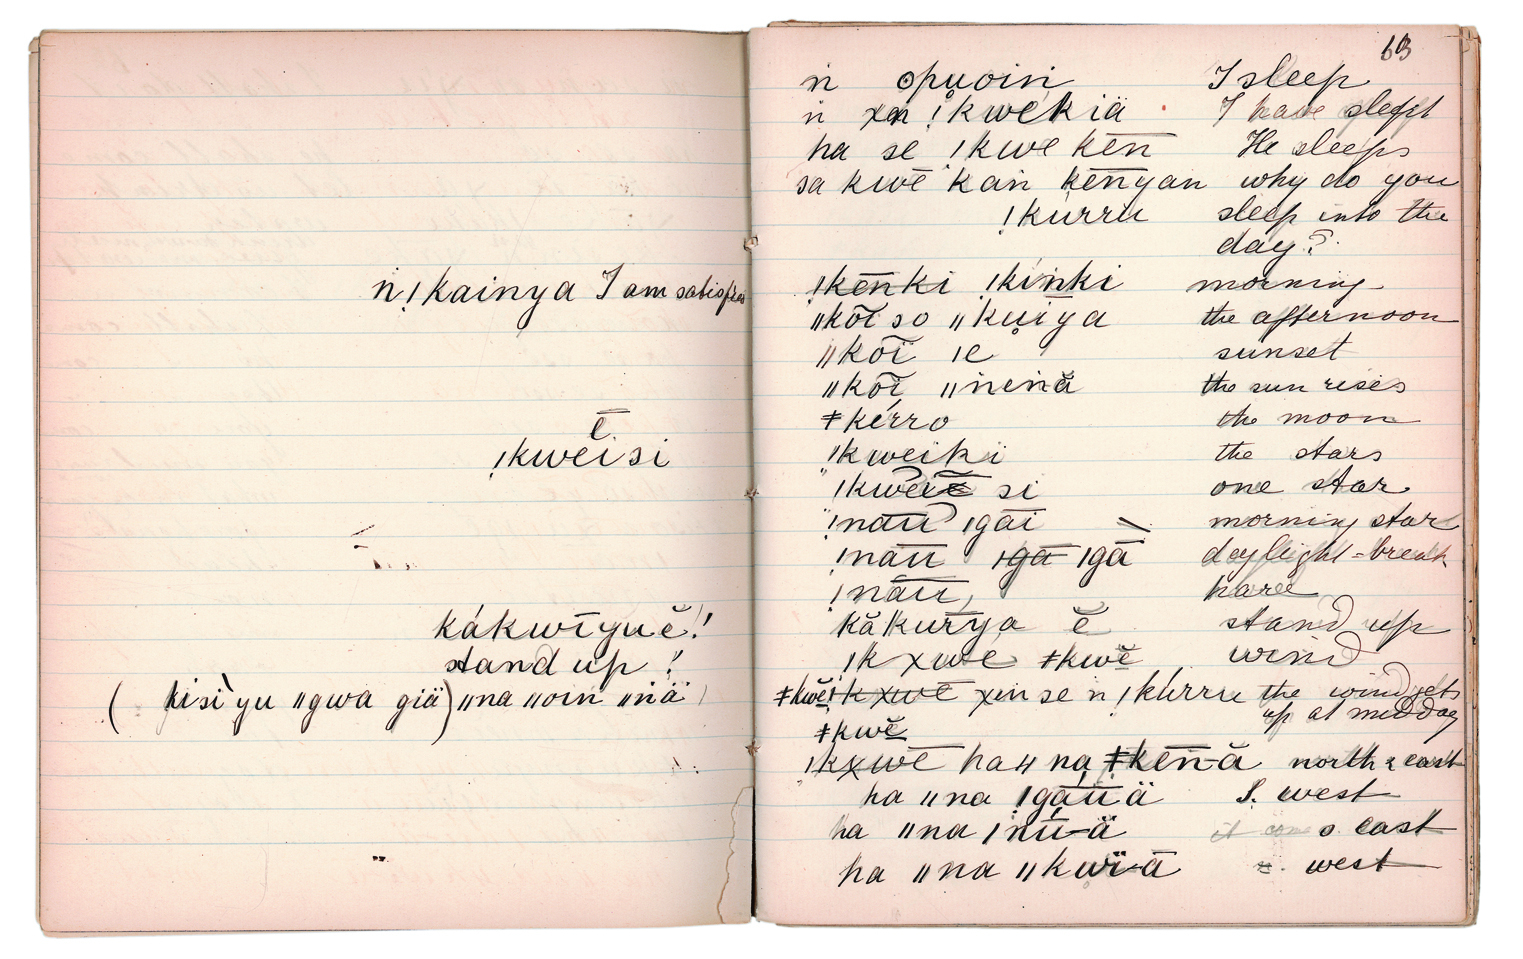 ṅ ! kainya I am satisfied
ē
! kweisi
kákwīyuĕ !
stand up !
( kisì yu ‖gwa giä) ‖na ‖oin ‖ṅä
63
ṅ opuoiṅ I sleep
ṅ xan ! kwékiä I have slept
ha se ! kwe kēn He sleeps
sa kwē kaṅ kēnyan why do you
! kúrru sleep into the
day?
! kēnki ! kiṅki morning
‖kōĩ so ‖kuīya the afternoon
‖kōĩ ǀe sunset
‖kōĩ ‖ṅenă the sun rises
ǂkérro the moon
! kweiki the stars
! kwe si one star
! nāu ǀgāi morning star
! nāū ǀgā ǀgā daylight-break
! nāū hare
kăkurya ĕ stand up
ǀk xwé ǂkwĕ wind
ǂkwĕ ! kxwē xin se n ! kúrru the wind gets
up at mid day
ǂkwĕ
ǀkxwē ha ‖ na ǂkēn-ă north & east
ha ‖na !gāūä S. west
ha ‖na ǀnū-ä it s east
ha ‖na ‖kwī-ā n. west